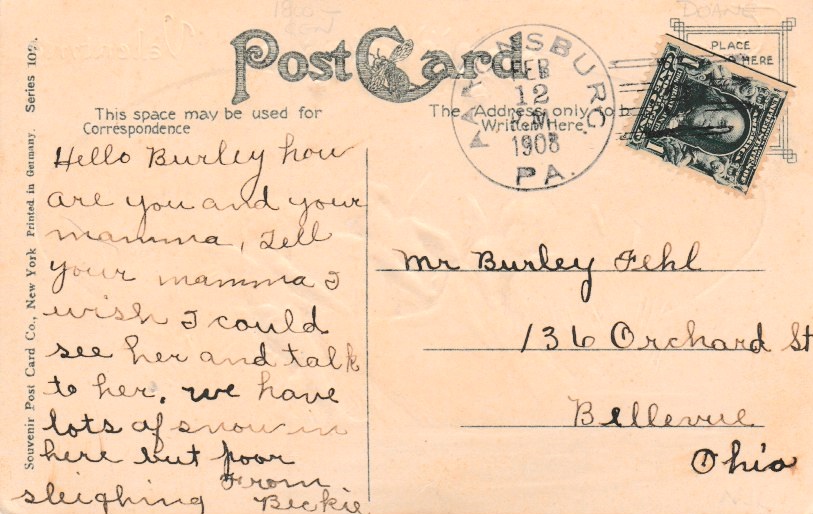 Post Card
PLACE
HERE
This space may be used for
Correspondence
The Address only to b
Written Here.
PARSONSBURG
FEB
12
1908
PA.
1
Souvenir Post Card Co., New York Printed in Germany. Series 109.
Hello Burley how
are you and your
mamma, Tell
your mamma I
wish I could
see her and talk
to her. we have
lots of snow in
here but poor
sleighing
From
Beckie
Mr Burley Fehl
136 Orchard St
Bellevue
Ohio
DOANE